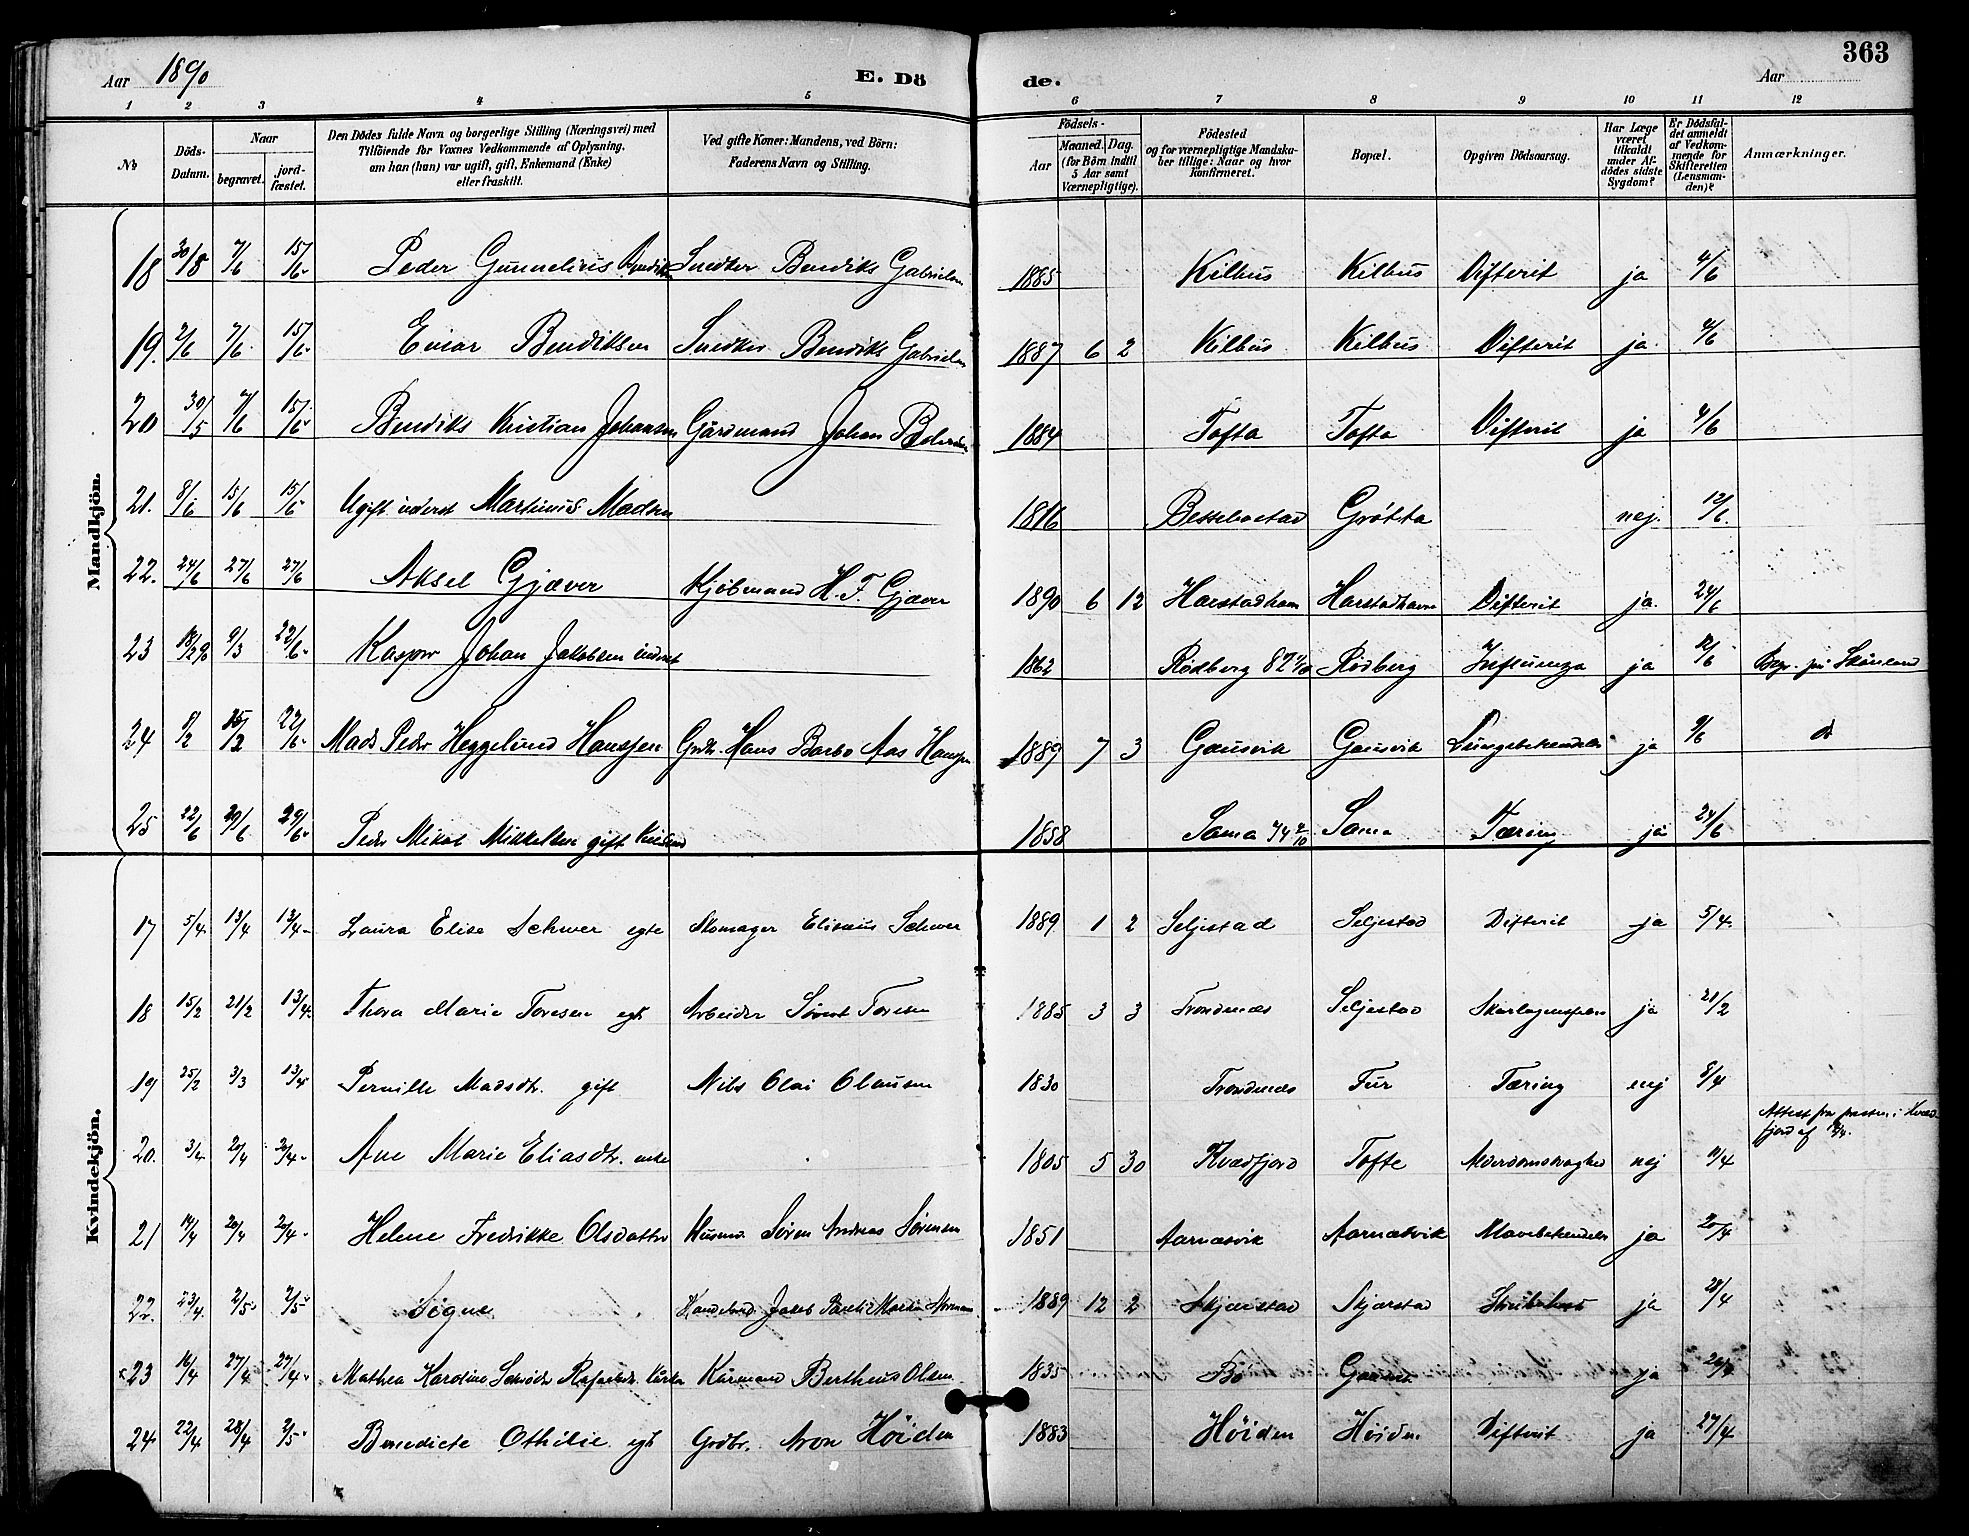 363
Aar 1890 E. Dö de. Aar
1 2 3 4 5 6 7 8 9 10 11 12
No
Döds-Datum.
Naar
begravet.
jordfæstet.
Den Dödes fulde Navn og borgerlige Stilling (Næringsvei) med
Tilföiende for Voxnes Vedkommende af Oplysning,
om han (hun) var ugift, gift, Enkemand (Enke)
eller fraskilt.
Ved gifte Koner: Mandens, ved Börn:
Faderens Navn og Stilling.
Födsels-
Aar
Maaned. Dag.
(for Börn indtil
5 Aar samt
Værnepligtige).
Födested
og for værnepligtige Mandska-
ber tillige: Naar og hvor
konfirmeret.
Bopæl.
Opgiven Dödsaarsag.
Har Læge
været
tilkaldt
under Af-
dödes sidste
Sygdom?
Er Dödsfal-
det anmeldt
af Vedkom-
mende for
Skifteretten
(Lensman-
den)?
Anmærkninger.
Mandkjön.
18 30/5 7/6 15/6 Peder Gunnelius Snedker Bendiks Gabrielsen 1885 Kilhus Kilhus Difterit ja 4/6
19. 2/6 7/6 15/6 Einar Bendiksen Snedker Bendiks Gabrielsen 1887 6 2 Kilhus Kilhus Difterit ja 4/6
20 30/5 7/6 15/6 Bendiks Kristian Johansen Gårdmand Johan 1884 Tofta Tofta Difterit ja 4/6
21. 8/6 15/6 15/6 Ugift inderst Martinus Madsen 1816 Bessebostad Grøtta nej. 12/6
22. 24/6 27/6 27/6 Aksel Gjæver Kjøbmand H. F. Gjæver 1890 6 12 Harstadhavn Harstadhavn Difterit ja. 24/6
23 18/2 9/3 22/6 Kasper Johan Jakobsen inderst 1862 Rødberg Rødberg Influenza ja Begr. på Skånland
24 8/2 22/6 Mads Peder Heggelund Hanssen Grdbr. Hans Barbo Aas Hanssen 1889 7 3 Gausvik Gausvik Lungebetændelse ja 9/6 do
25 22/6 29/6 29/6 Peder Mikal Mikkelsen gift 1858 Sama Sama Tæring ja 24/6
Kvindekjön.
17 5/4 13/4 13/4 Laura Elise Schwer egte Skomager Elisæus Schwer 1889. 1 2 Seljestad Seljestad Difterit ja 5/4
18 15/2 21/2 13/4 Thora Marie Toresen egte Arbeider Sivert Toresen 1885 3 3 Trondenæs Seljestad Skarlagensfeber ja 21/2
19 25/2 3/3 13/4 Pernille Madsdtr. gift Nils Olai Olausen 1830 Trondenæs Tæring nej 8/4
20. 3/4 20/4 20/4 Ane Marie Eliasdtr. enke 1805 5 30 Kvædfjord Tofte Alderdomssvaghed nej 11/4 Attest fra presten i Kvædfjord af
21 14/4 20/4 20/4 Helene Fredrikke Olsdatter Husmd. Søren Andreas Sørensen 1851 Aarnæsvik Aarnæsvik Mavebetændelse ja 20/4
22. 23/4 2/5 2/5 Signe Jakob 1889 12 2 Skjærstad Skjærstad Strubehoste ja 28/4
23 16/4 27/4 27/4 Mathea Karoline Kårmand Bertheus Olsen 1835 Bø ja
24. 22/4 28/4 2/5 Benedicte Othilie egte Grdbr. Aron Høiden 1883 Høiden Høiden Difterit ja 27/4